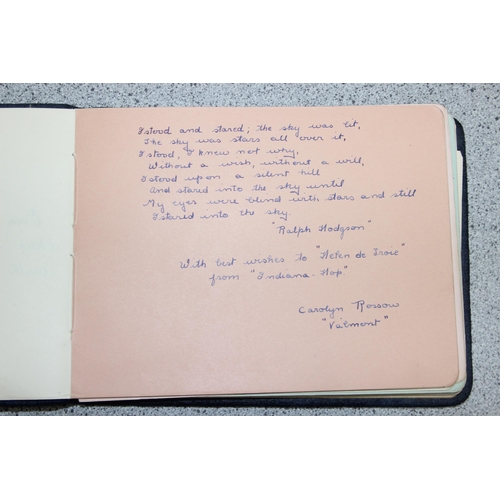 I stood and stared; the sky was lit,
The sky was stars all over it,
I stood, I knew not why,
Without a wish, without a will,
I stood upon a silent hill
And stared into the sky until
My eyes were blind with stars and still
I stared into the sky.
"Ralph Hodgson"
With best wishes to "Helen de Troie"
from "Indiana-Hop"
Carolyn Rossow
"Valmont"